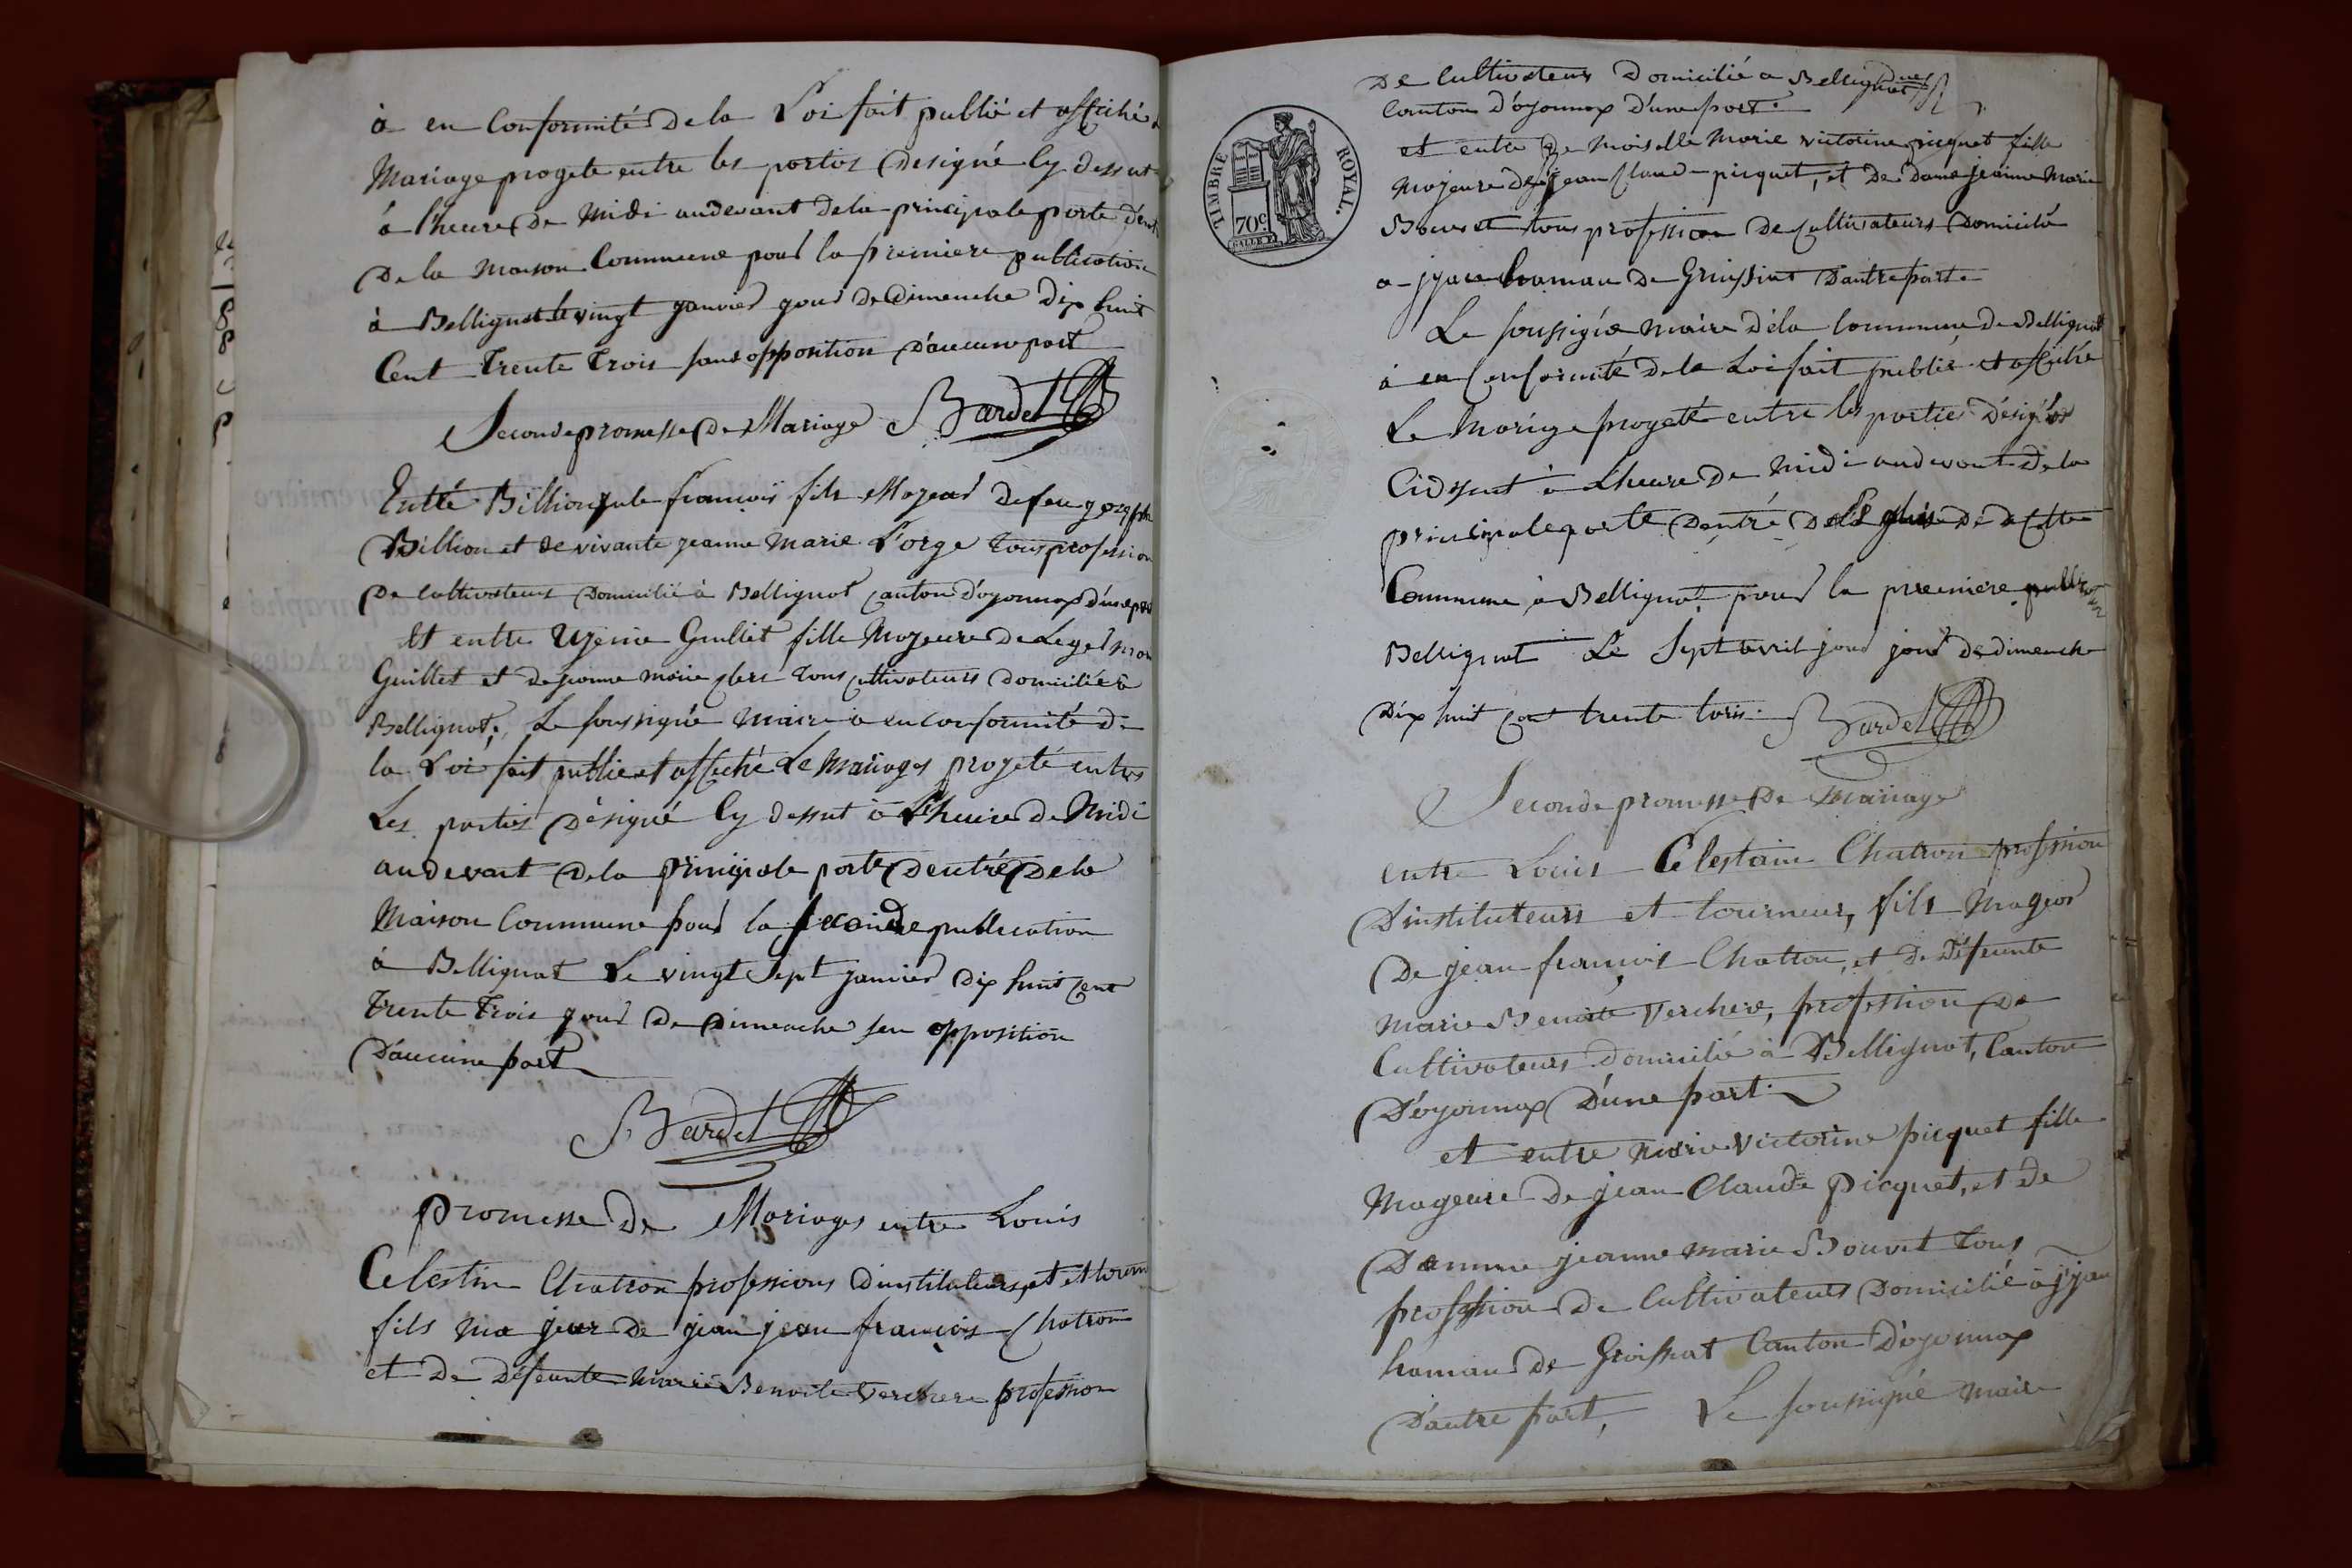 à en Conformité De la Loi fait publié et affiché
Mariage progete entre les parties Designé Cy dessut
à l'heure De Midi audevant dela principale porte
De la Maison Commune pour la premiere publication
à Bellignat le vingt janvier jour De dimenche Dix huit
Cent Trente Trois sans opposition D'aucune part
Seconde promesse De Mariage Bardet
Entré Billion jule françois fils Majeur De feu joseph
Billion et de vivante jeanne Marie L'orge tous profession
De cultivateurs Domicilié à Bellignat canton d'oyonnax d'une part
Et entre Ugenie Guillet fille Majeure De Leger
Guillet et de jeanne marie clerc tous cultivateurs Domiciliés à
Bellignat, Le soussigné Maire à en Conformité De
la Loi fait publié et affiché Le Mariages projeté entres
Les parties Désigné Cy dessut à L'heure De Midi
au devant De la Principale porte D'entré De la
Maison Commune pour la seconde publication
à Bellignat Le vingt Sept janvier Dix huit cent
Trente Trois jour De Dimenche san opposition
D'aucune part
Bardet
Promesse De Mariages entre Louis
Celestin Chatron professions D'instituteurs, et et tourn
fils Ma jeur De jean jean françois Chatron
et De Défeunte Marie Benoite Verchere profession
TIMBRE ROYAL.
70c.
De Cultivateurs Domicilié a Bellignat
Canton d'oyonnax d'une part.
et entre De moiselle Marie victorine picquet fille
Majeure De jean Claude picquet, et De dame jeanne Marie
Bouvet tous profession De Cultivateurs Domicilié
a jjau hamau De Groissiat D'autre part.
Le soussigné maire Déla Commune De Bellignat
à en Conformité De la Loi fait publié et affiché
Le Mariage progeté entre les parties Désignés
Cidessut à L'heure De Midi au devant De la
principale porte D'entré De De Cette
Commune à Bellignat, pour la premiere publication
Bellignat Le Sept avril jour jour De dimenche
Dix huit cent trente trois. Bardet
Seconde promesse De Mariage
entre Louis Celestain Chatron profession
D'instituteurs et tourneur, fils Mageur
De jean françois Chatron, et De Défeunte
Marie Benoite Verchere, profession De
Cultivateurs Domicilié à Bellignat, Canton
D'oyonnax D'une part.
et entre Marie Victorine picquet fille
Mageure De jean Claude Picquet, et De
Damme jeanne marie Bouvet Tous
profession De Cultivateurs Domicilié à jjau
hamau De Groissiat Canton D'oyonnax
D'autre part, Le soussigné Maire